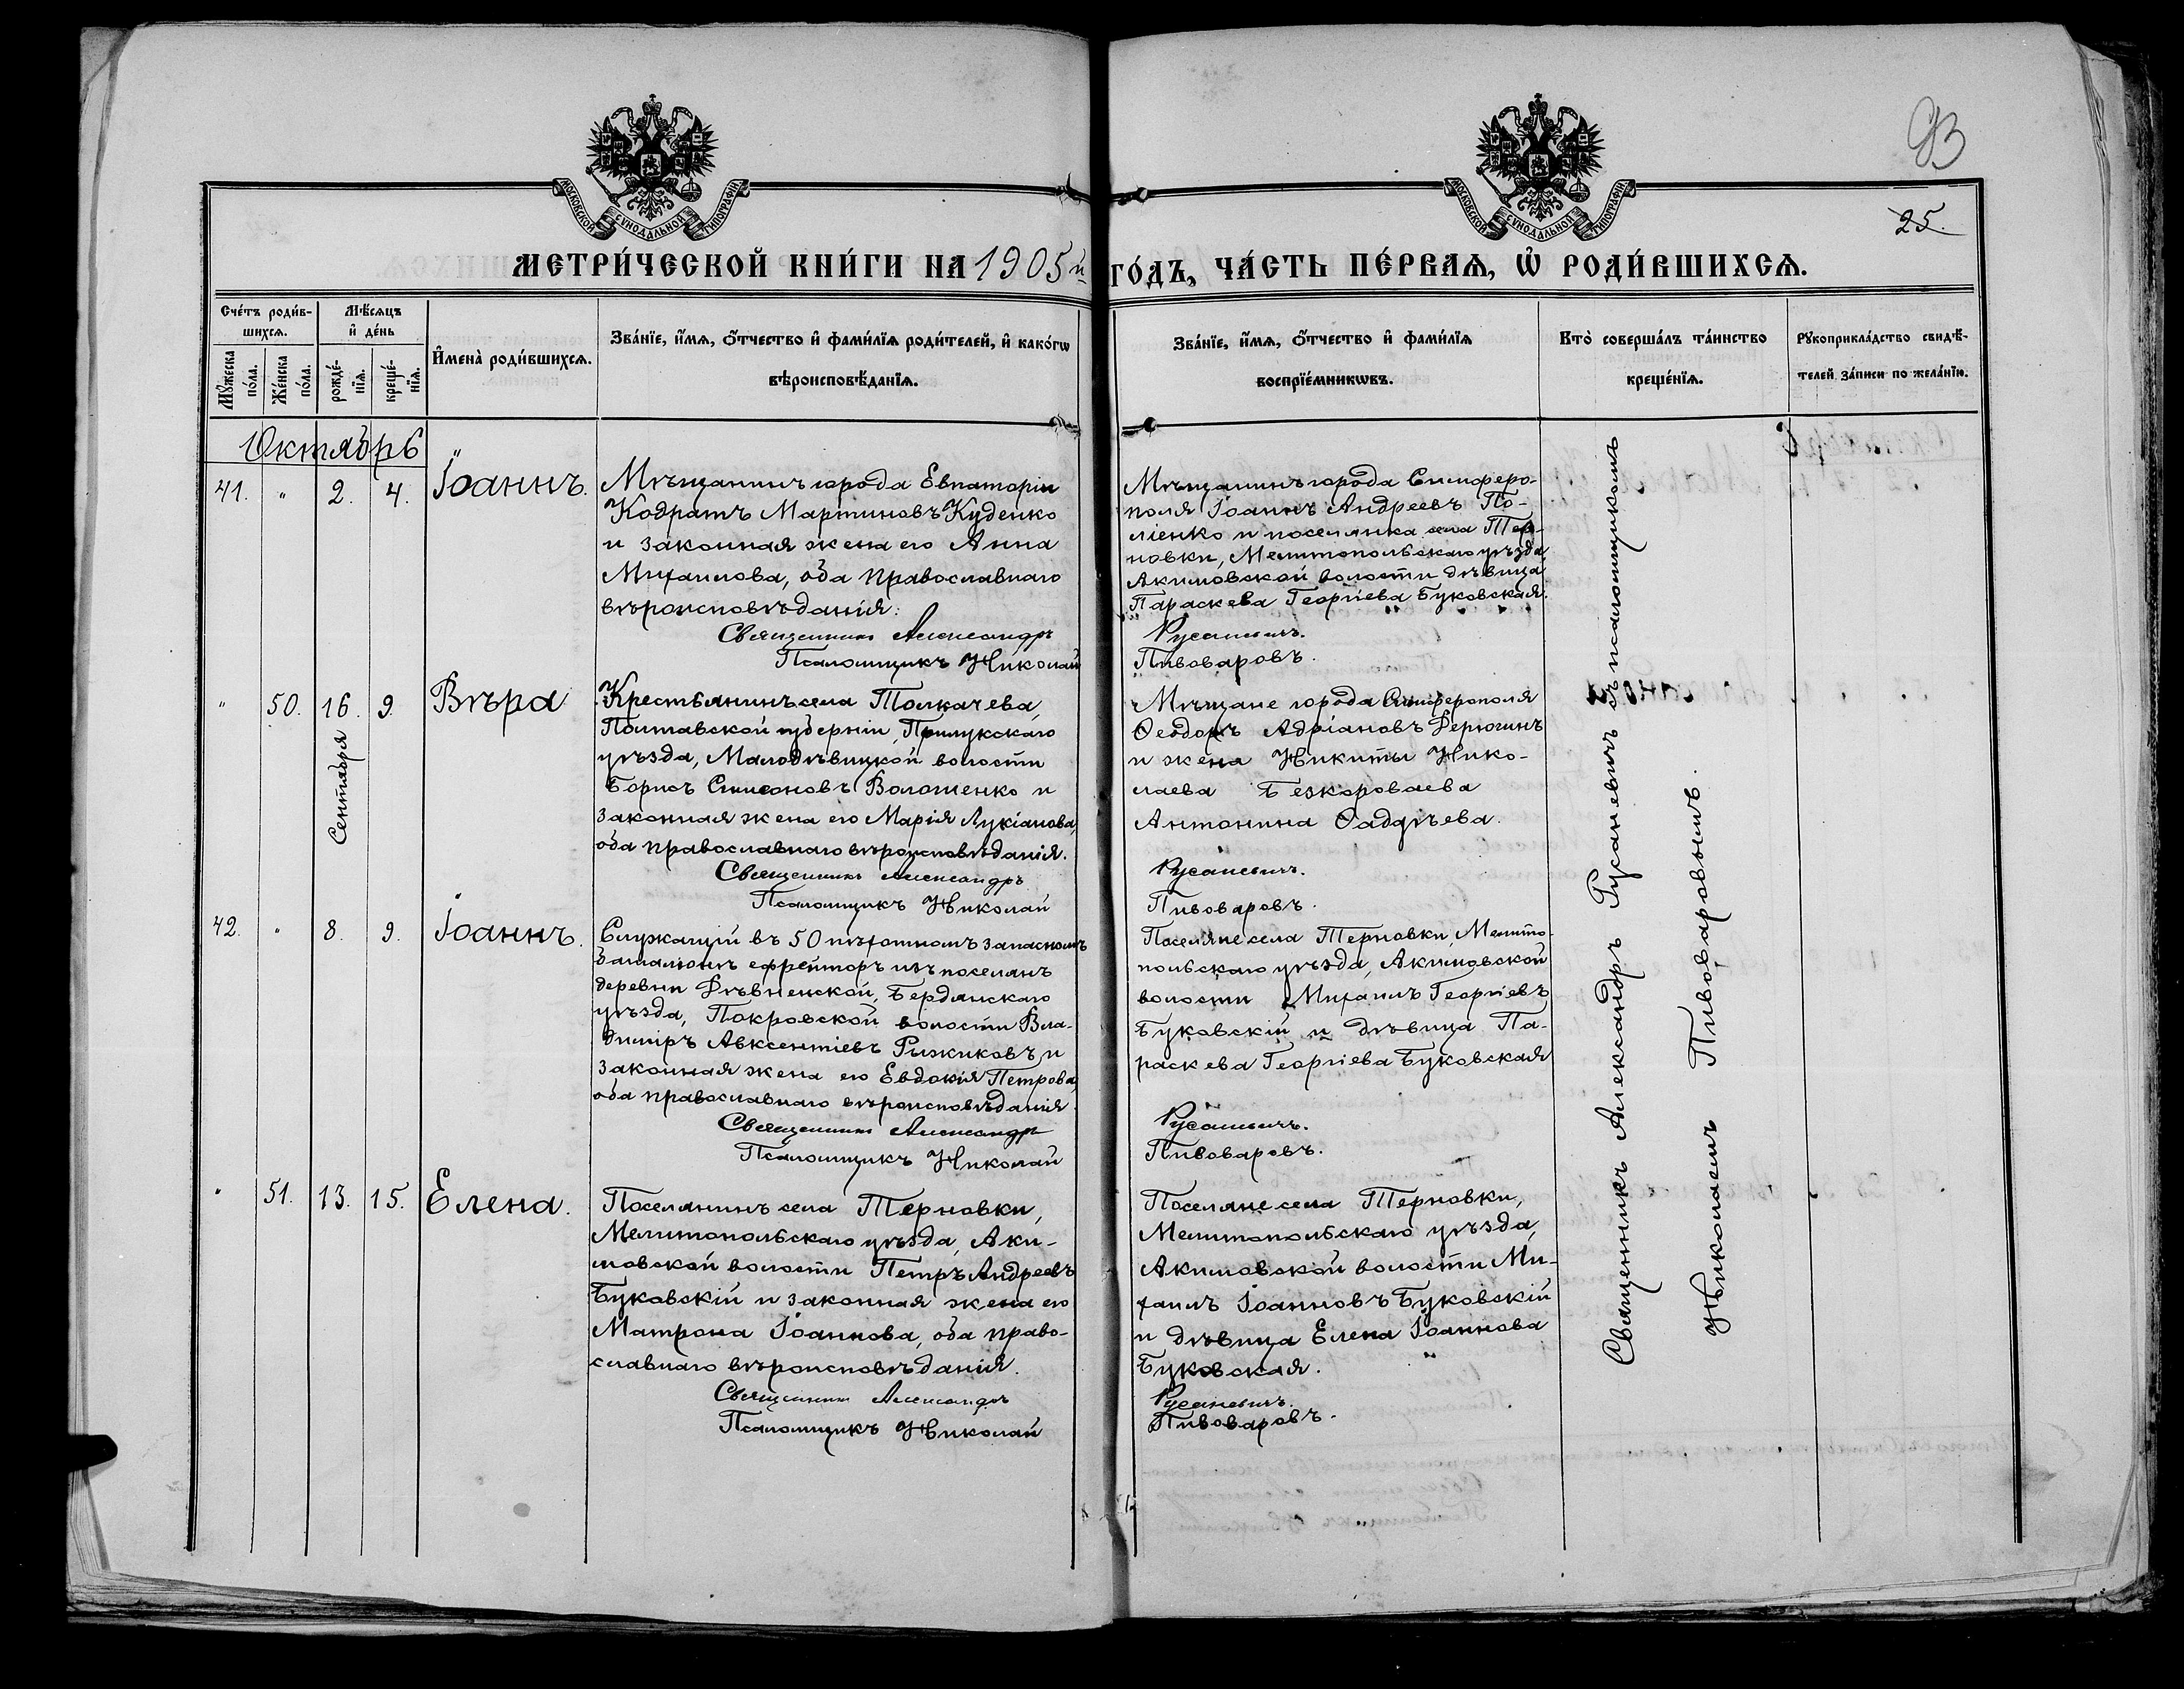 93
25.
МОСКОВСКОЙ СѴНОДАЛЬНОЙ ТИПОГРАФІИ
МОСКОВСКОЙ СѴНОДАЛЬНОЙ ТИПОГРАФІИ
МЕТРИ́ЧЕСКОЙ КНИ́ГИ НА 1905й ГО́ДЪ, ЧА́СТЬ ПЕ́РВАѦ, Ѡ҆ РОДИ́ВШИХСѦ.
Сче́тъ роди́в-
шихсѧ.
Мѣ́сѧцъ
и҆ де́нь
Мꙋ́жеска по́ла.
Же́нска по́ла.
рожде́-нїѧ.
креще́-нїѧ.
И҆мена̀ роди́вшихсѧ.
Зва́нїе, и҆́мѧ, ѻ҆́тчество и҆ фами́лїѧ роди́телей, и҆ како́гѡ
вѣроисповѣ́данїѧ.
Зва́нїе, и҆́мѧ, ѻ҆́тчество и҆ фами́лїѧ
воспрїе́мникѡвъ.
Кто̀ соверша́лъ та́инство
креще́нїѧ.
Рꙋкоприкла́дство свидѣ́-
телей за́писи по жела́нїю.
Октябрь
41. " 2. 4. Іоаннъ.
Мѣщанинъ города Евпаторіи
Кодратъ Мартиновъ Куденко
и законная жена его Анна
Михаилова, оба православнаго
вѣроисповѣданія.
Священникъ Александръ
Псаломщикъ Николай
Мѣщанинъ города Симферо-
поля Іоаннъ Андреевъ По-
ліенко и поселянка села Тер-
новки, Мелитопольскаго уѣзда,
Акимовской волости дѣвица
Параскева Георгіева Буковская.
Русаневичъ.
Пивоваровъ.
" 50. 16. 9. Вѣра
Сентября
Крестьянинъ села Толкачева,
Полтавской губерніи, Прилукскаго
уѣзда, Малодѣвицкой волости
Борисъ Симеоновъ Волошенко и
законная жена его Марія Лукіанова,
оба православнаго вѣроисповѣданія.
Священникъ Александръ
Псаломщикъ Николай
Мѣщане города Симферополя
Ѳеодоръ Адріановъ Дерюгинъ
и жена Никиты Нико-
лаева Безкороваева
Антонина Ѳаддѣева.
Русаневичъ.
Пивоваровъ.
42. " 8. 9. Іоаннъ.
Служащій въ 50 пѣхотномъ запасномъ
баталіонѣ ефрейторъ изъ поселянъ
деревни Дѣвненской, Бердянскаго
уѣзда, Покровской волости Вла-
диміръ Авксентіевъ Рыжиковъ и
законная жена его Евдокія Петрова,
оба православнаго вѣроисповѣданія.
Священникъ Александръ
Псаломщикъ Николай
Поселяне села Терновки, Мелито-
польскаго уѣзда, Акимовской
волости Михаилъ Георгіевъ
Буковскій и дѣвица Па-
раскева Георгіева Буковская
Русаневичъ.
Пивоваровъ.
" 51. 13. 15. Елена.
Поселянинъ села Терновки,
Мелитопольскаго уѣзда, Аки-
мовской волости Петръ Андреевъ
Буковскій и законная жена его
Матрона Іоаннова, оба право-
славнаго вѣроисповѣданія.
Священникъ Александръ
Псаломщикъ Николай
Поселяне села Терновки,
Мелитопольскаго уѣзда,
Акимовской волости Ми-
хаилъ Іоанновъ Буковскій
и дѣвица Елена Іоаннова
Буковская.
Русаневичъ.
Пивоваровъ.
Священникъ Александръ Русаневичъ съ псаломщикомъ
Николаемъ Пивоваровымъ.